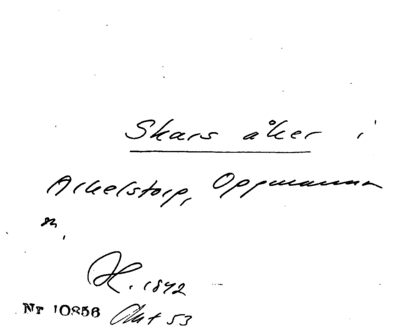 Skars åker i
Arkelstorp, Oppmanna
sn.
H. 1842
Nr 10856 Akt 53